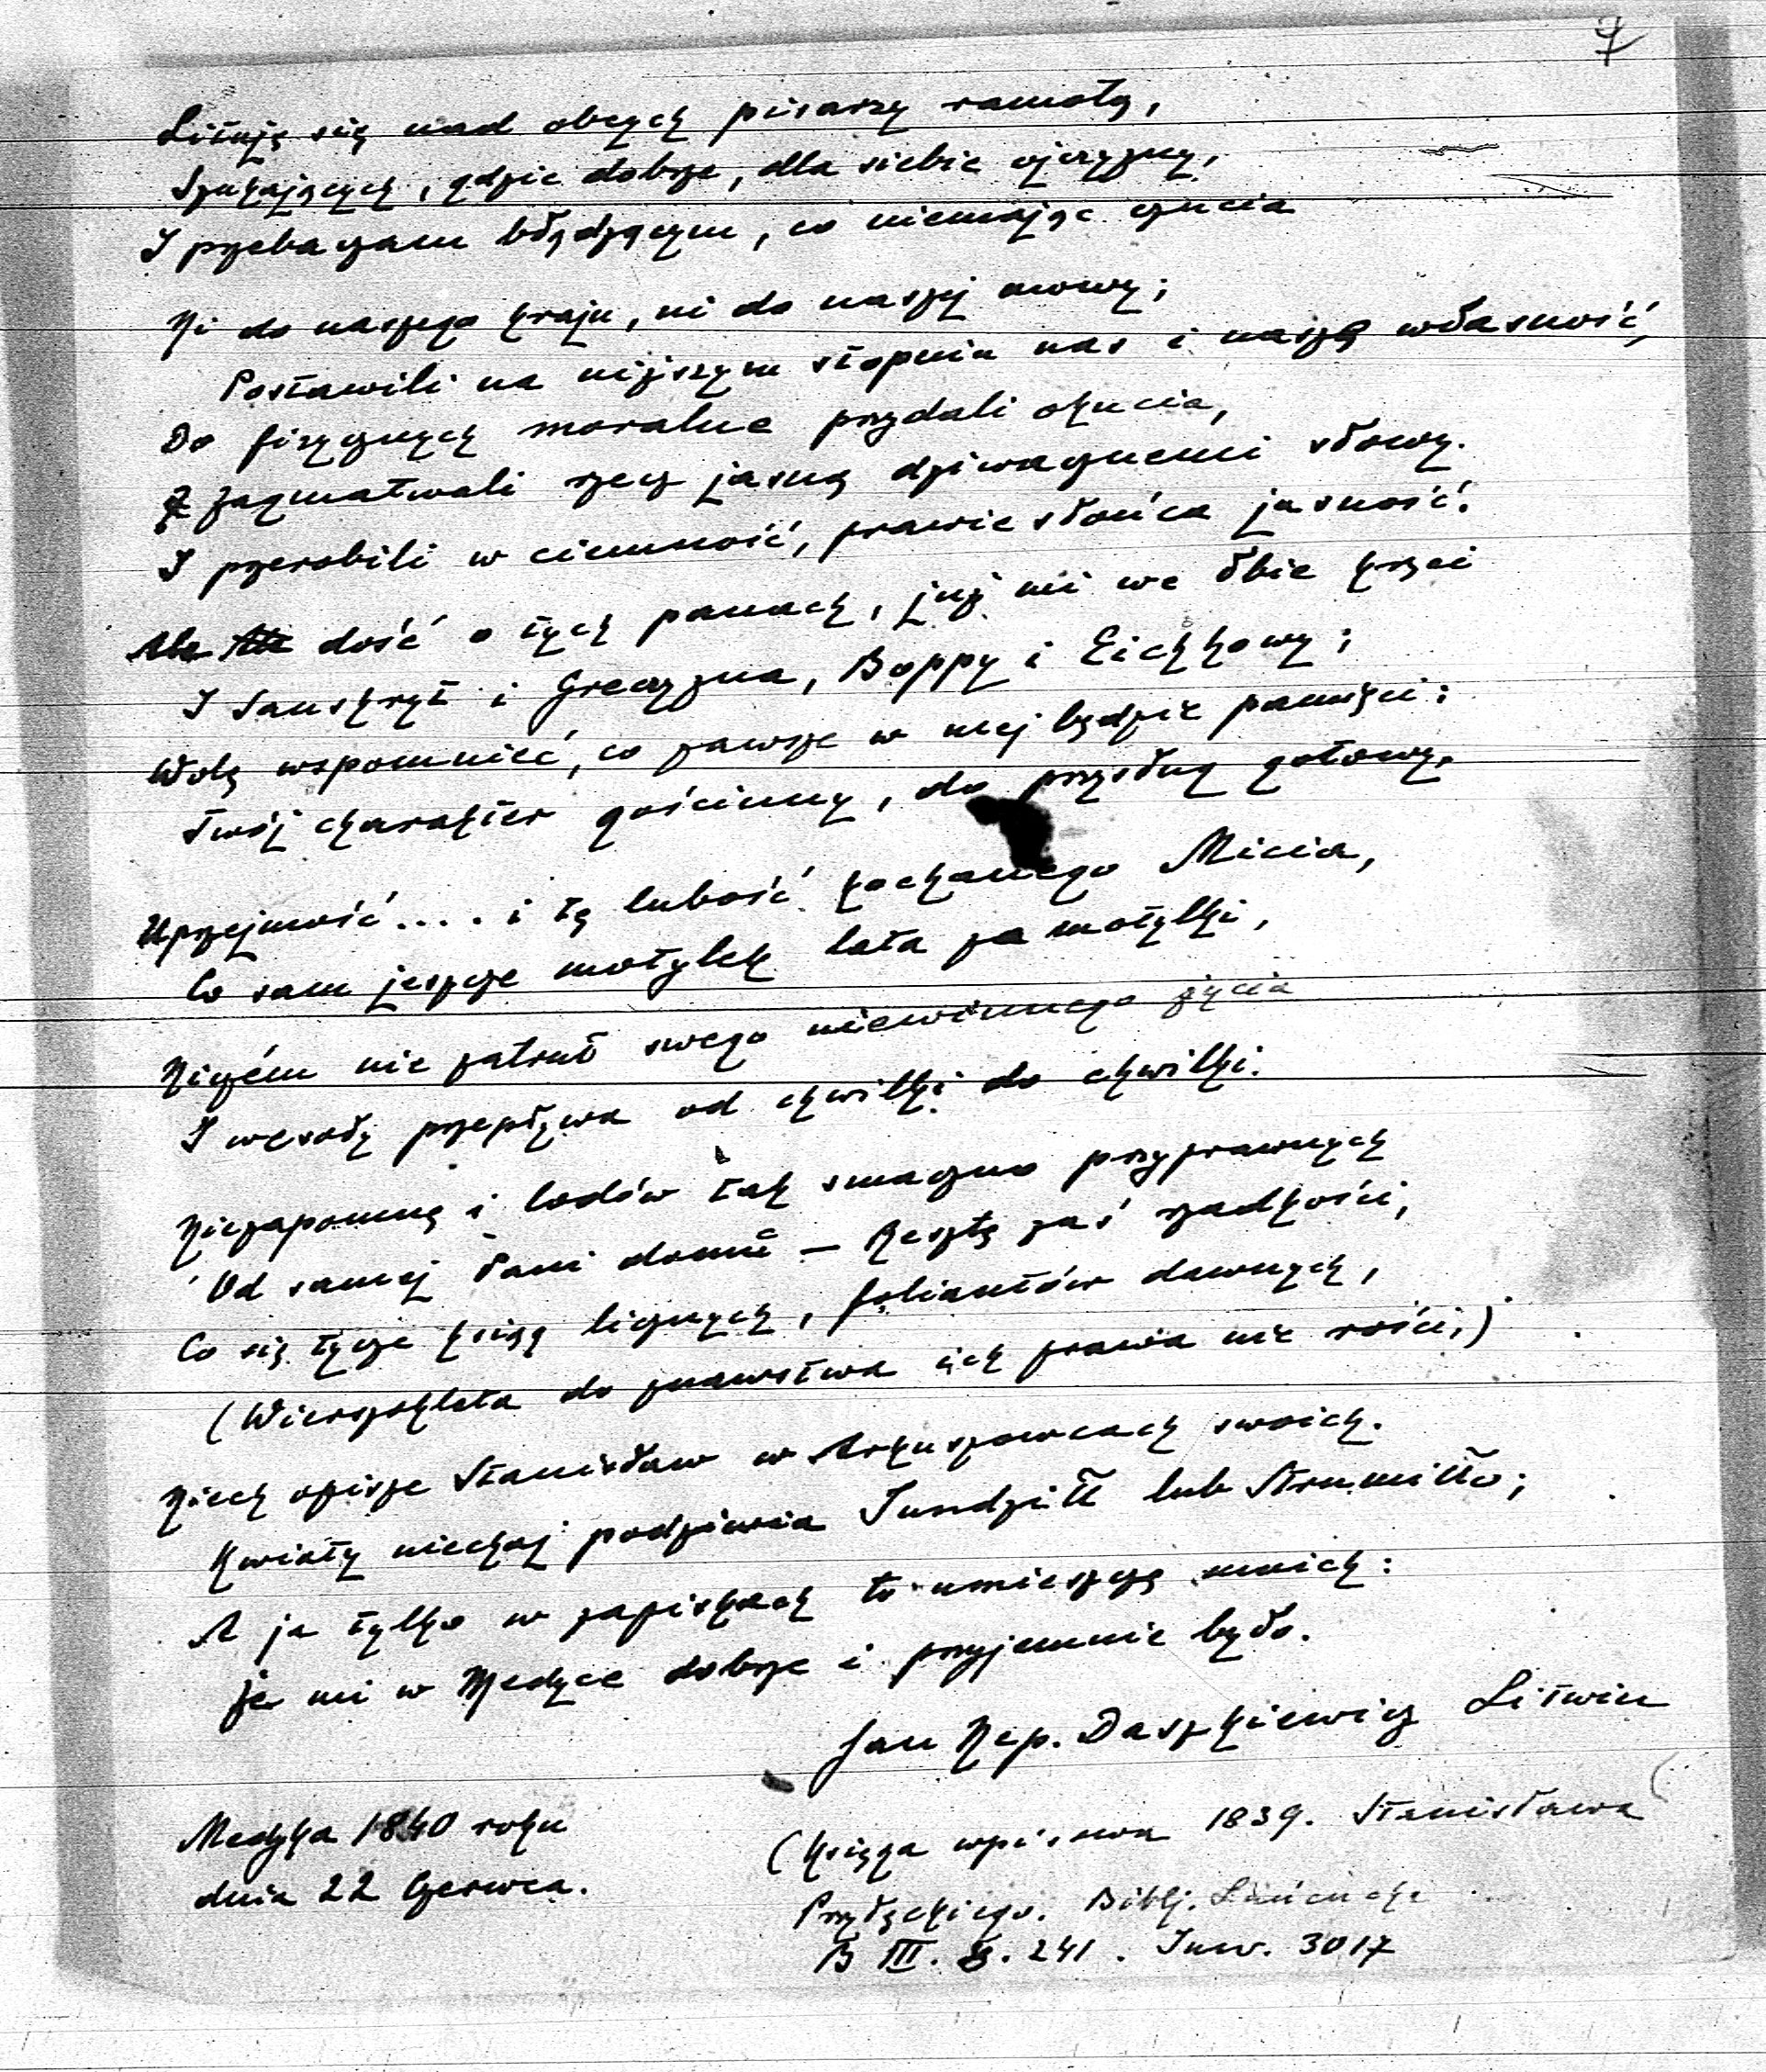 7
Lituję się nad obcych pisarzy ramotą,
Szukających, gdzie dobrze, dla siebie ojczyzny,
I przebaczam błądzącym, co niemając czucia
Ni do naszego kraju, ni do naszej mowy;
Postawili na niższym stopniu nas i naszą własność,
Do fizycznych moralne przydali okucia,
Zagmatwali rzecz jasną dziwacznemi słowy.
I przerobili w ciemność, prawie słońca jasność.
dość o tych panach, już mi we łbie kręci
I Sanskryt i Greczyzna, Boppy i Eichhowy;
Wolę wspomnieć, co zawsze w mej będzie pamięci:
Twój charakter gościnny, do przysług gotowy,
Uprzejmość.... i tę lubość kochanego Micia,
Co sam jeszcze motylek lata za motylki,
Niczém nie zatruł swego niewinnego życia
I wesoły przepływa od chwilki do chwilki.
Niezapomnę i lodów tak smaczno przyprawnych
Od samej Pani domu — Resztę zaś rzadkości,
Co się tycze ksiąg licznych, foliantów dawnych,
(Wierszokleta do znawstwa ich prawa nie rości,)
Niech opisze Stanisław w Arkuszowcach swoich.
Kwiaty niechaj podziwia Jundziłł lub Strumiłło;
A ja tylko w zapiskach to umieszczę moich:
Że mi w Medyce dobrze i przyjemnie było.
Jan Nep. Daszkiewicz Litwin
Medyka 1840 roku
dnia 22 Czerwca.
(Księga wpisowa 1839. Stanisława
Przyłęckiego. Bibij. Łańcucka
B III. 241. Inw. 3017